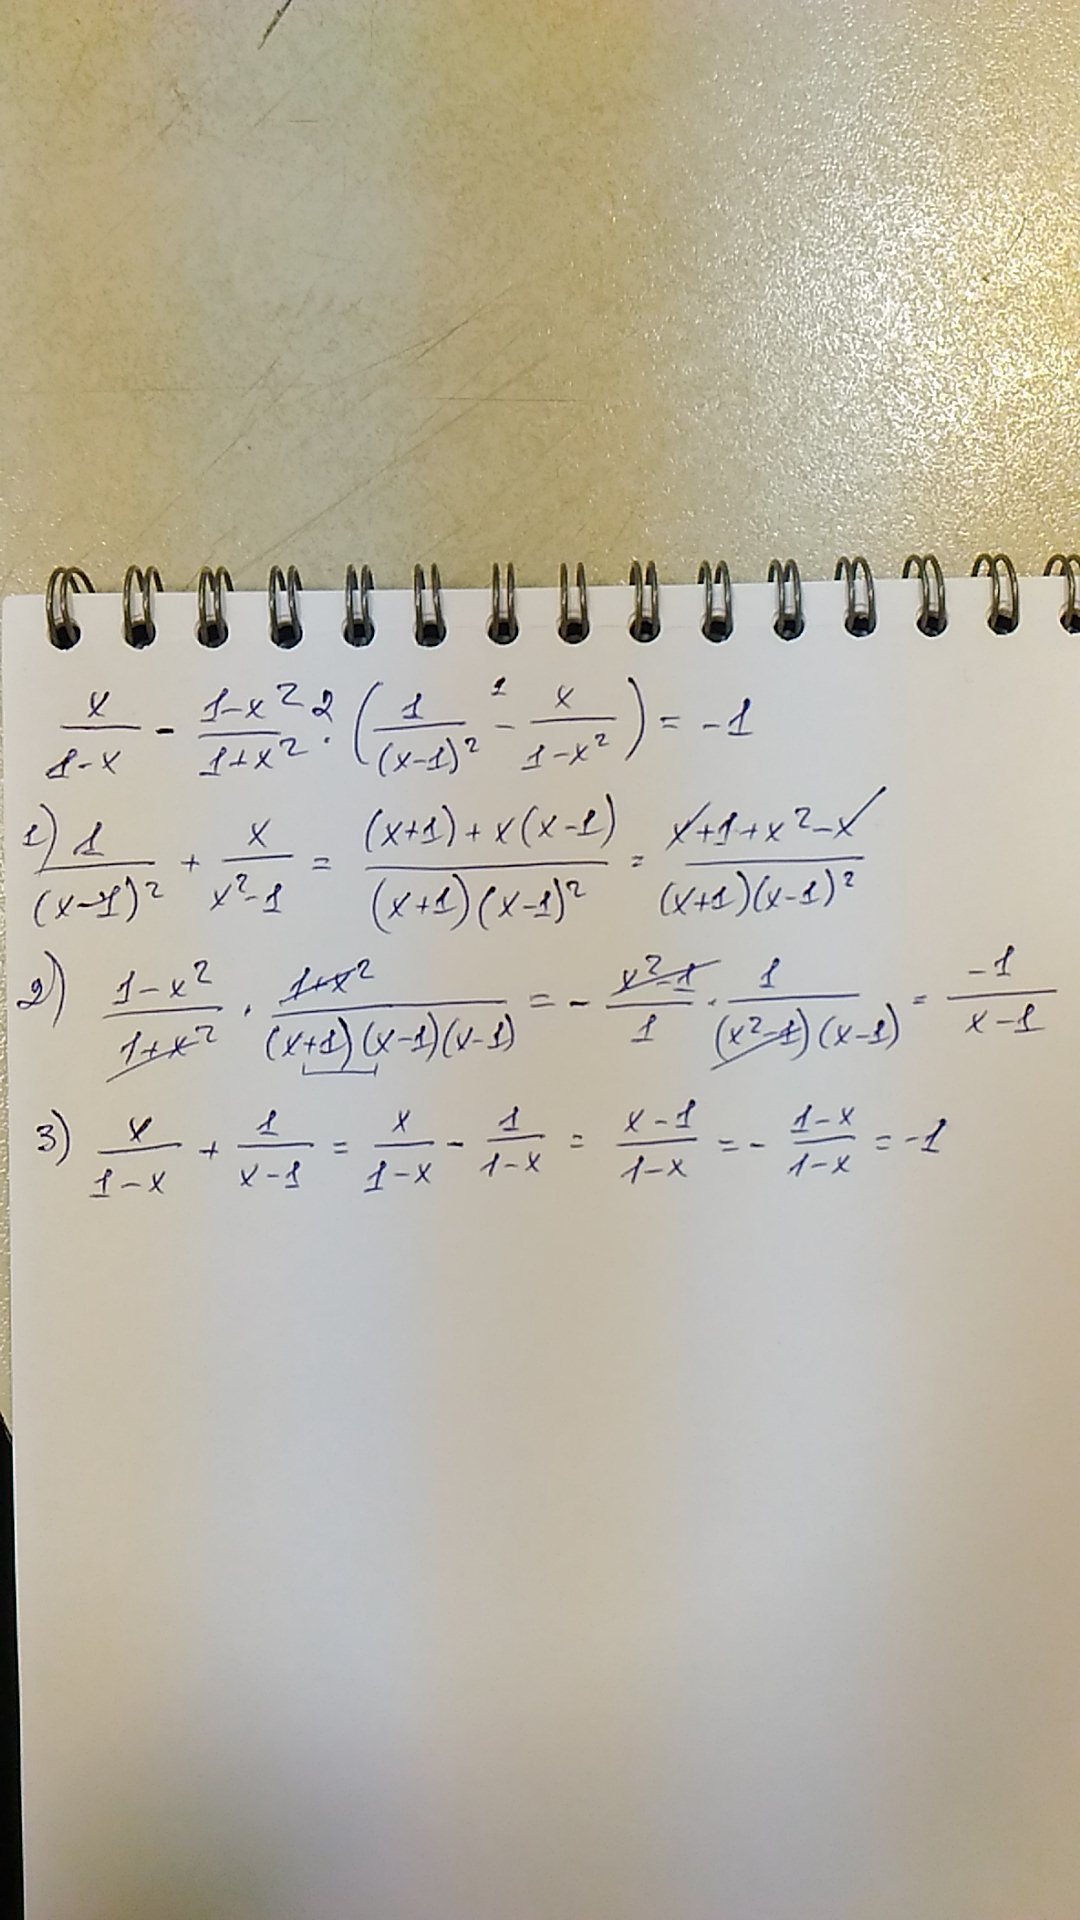 x/(1-x) - (1-x²)/(1+x²) ²· (1/(x-1)² ¹- x/(1-x²)) = -1
1) 1/(x-1)² + x/(x²-1) = ((x+1)+x(x-1))/((x+1)(x-1)²) = (x+1+x²-x)/((x+1)(x-1)²)
2) (1-x²)/(1+x²) · (1+x²)/((x+1)(x-1)(x-1)) = - (x²-1)/1 · 1/((x²-1)(x-1)) = -1/(x-1)
3) x/(1-x) + 1/(x-1) = x/(1-x) - 1/(1-x) = (x-1)/(1-x) = - (1-x)/(1-x) = -1